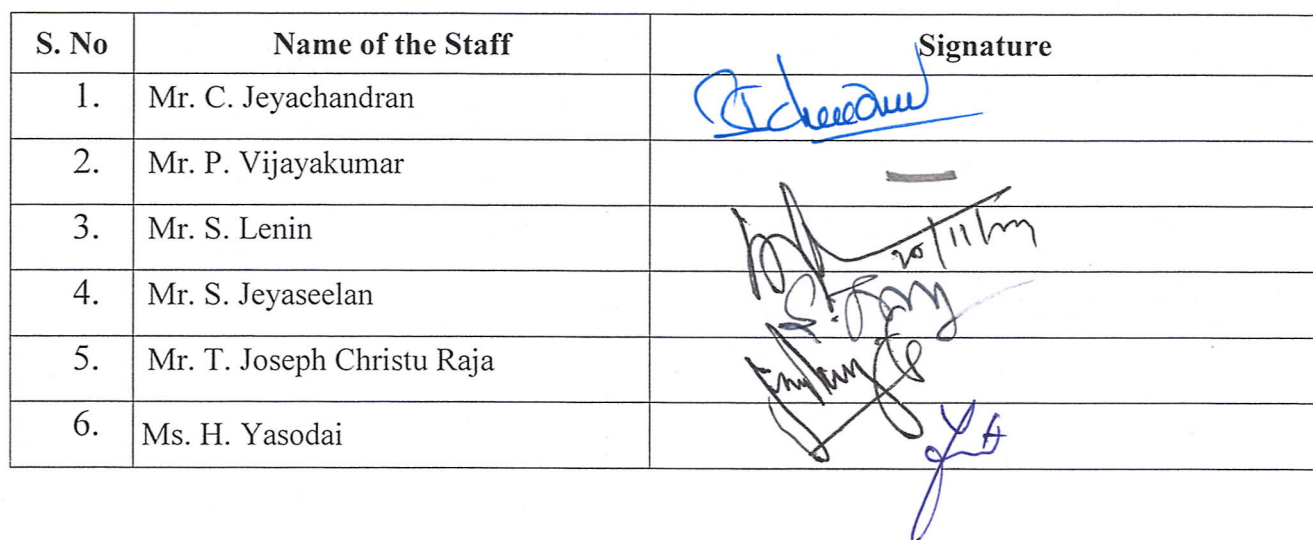 S. No Name of the Staff Signature
1. Mr. C. Jeyachandran
2. Mr. P. Vijayakumar
3. Mr. S. Lenin
4. Mr. S. Jeyaseelan
5. Mr. T. Joseph Christu Raja
6. Ms. H. Yasodai